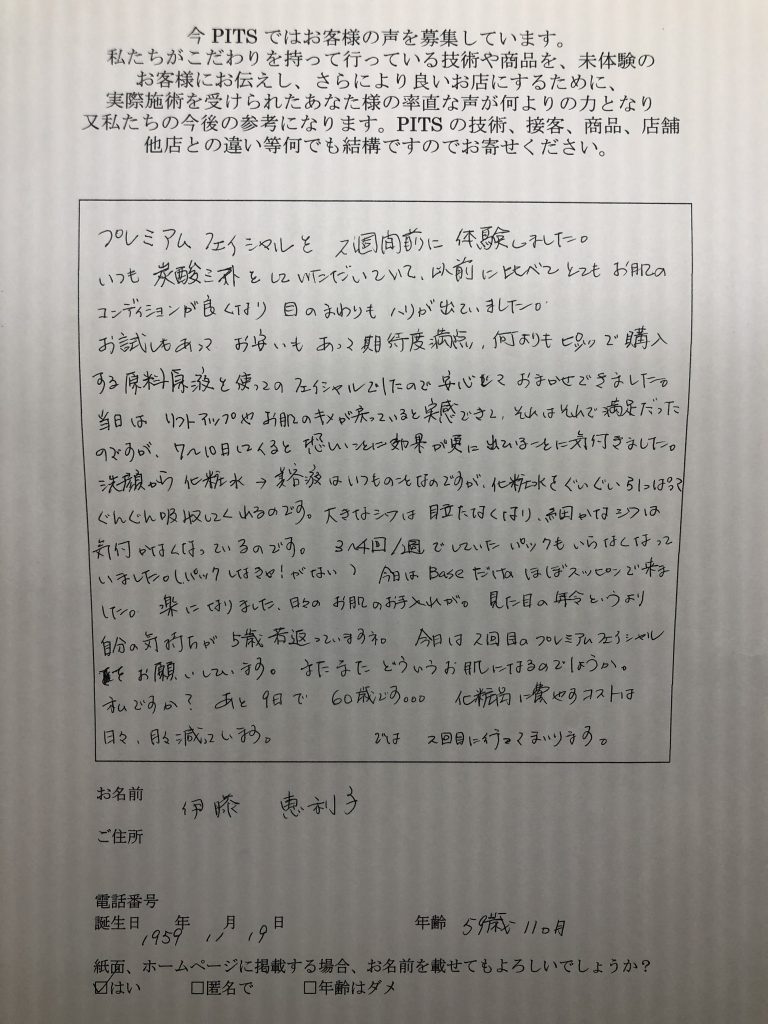 今 PITS ではお客様の声を募集しています。
私たちがこだわりを持って行っている技術や商品を、未体験の
お客様にお伝えし、さらにより良いお店にするために、
実際施術を受けられたあなた様の率直な声が何よりの力となり
又私たちの今後の参考になります。PITS の技術、接客、商品、店舗
他店との違い等何でも結構ですのでお寄せください。
プレミアムフェイシャルを 2週間前に 体験しました。
いつも 炭酸ミストをしていただいていて、以前に比べてとてもお肌の
コンディションが良くなり 目のまわりも ハリが出ていました。
お試しもあって お安いもあって期待度満点、何よりもピッツで購入
する原料原液を使ってのフェイシャルでしたので安心しておまかせできました。
当日は リフトアップや お肌のキメが戻っていると実感できて、それはそれで満足だった
のですが、7〜10日してくると 恐いことに効果が更に出ていることに気付きました。
洗顔から 化粧水 → 美容液はいつものことなのですが、化粧水をぐいぐい引っぱって
ぐんぐん吸収してくれるのです。大きなシワは 目立たなくなり、細かなシワは
気付かなくなっているのです。 3〜4回/週でしていた パックもいらなくなって
いました。(パックしなきゃ!がない) 今日は Baseだけの ほぼスッピンで来ま
した。 楽になりました、日々の お肌のお手入れが。 見た目の年令というより
自分の気持ちが 5歳若返っていますネ。 今日は 2回目のプレミアムフェイシャル
を お願いしています。 またまた どういうお肌になるのでしょうか。
私ですか? あと 9日で 60歳です。。。 化粧品に費やすコストは
日々、月々減っています。 では 2回目に行ってまいります。
お名前 伊藤 恵利子
ご住所
電話番号
誕生日 1959年 11月 19日 年齢 59歳 11ヵ月
紙面、ホームページに掲載する場合、お名前を載せてもよろしいでしょうか?
☑はい □匿名で □年齢はダメ